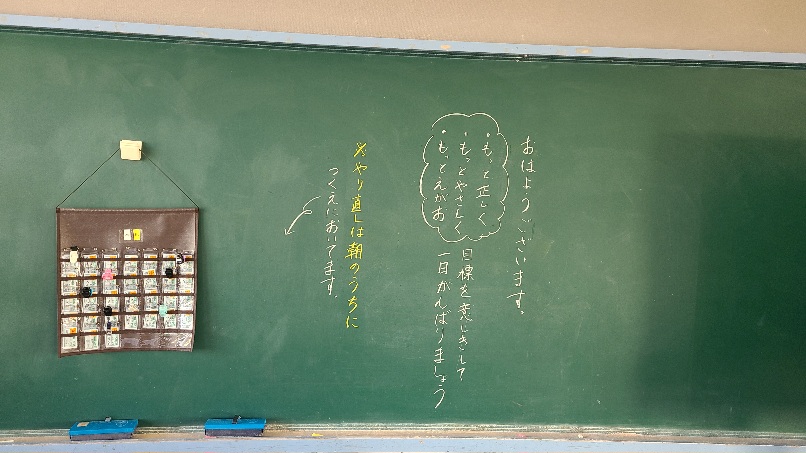 おはようございます。
・もっと正しく
・もっとやさしく
・もっとえがお
目標を意しきして
一日がんばりましょう
※やり直しは朝のうちに
つくえにおいてます。